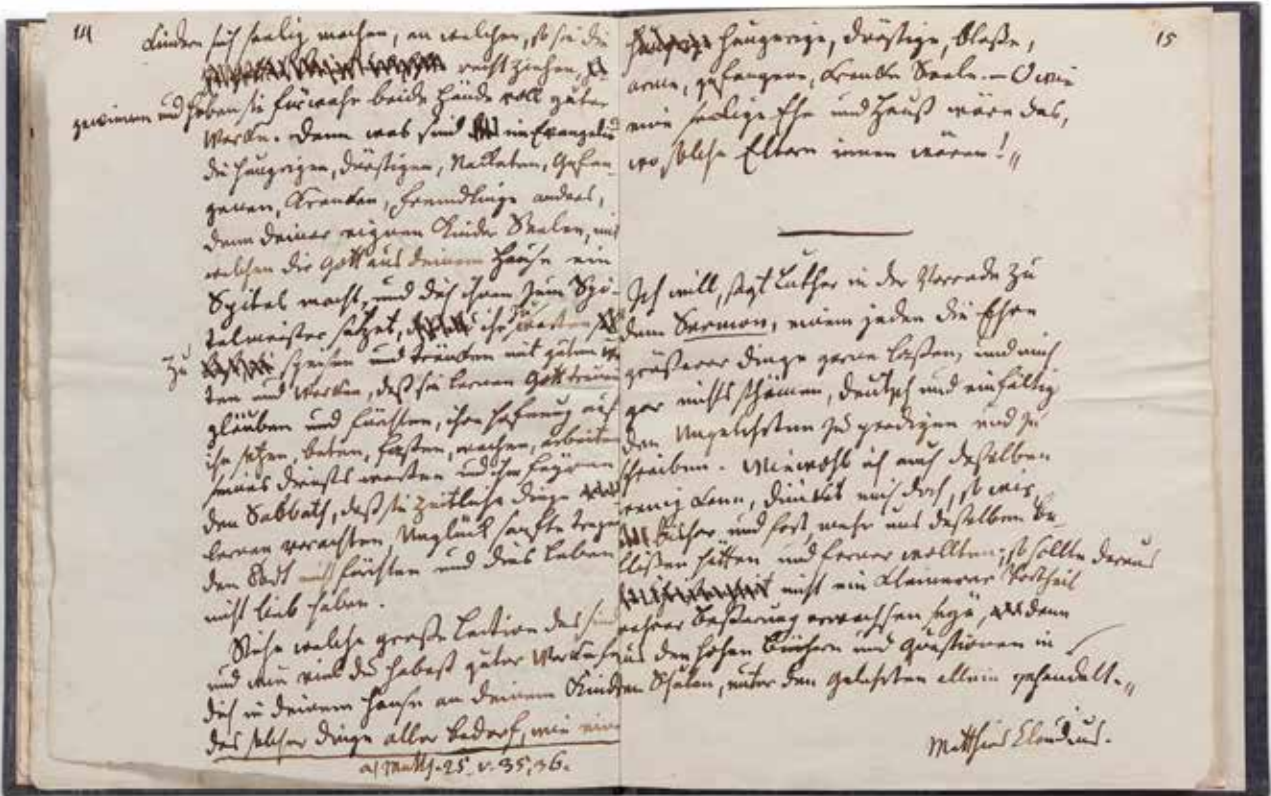 14
Kindern sich seelig machen, an welchen, so sie die
recht ziehen,
gewinnen und haben sie fürwahr beide Hände voll guter
Werke. Denn was sind im Evangelio
die Hungrigen, Durstigen, Nacketen, Gefan-
genen, Kranken, Fremdlinge anders,
denn deiner eignen Kinder Seelen, mit
welchen dir Gott aus deinem Hause ein
Spital macht, und dich ihnen zum Spi-
telmeister setzet,
zu speisen und tränken mit guten Wor-
ten und Werken, daß sie lernen Gott trauen
glauben und fürchten, ihre Hofnung auf
ihn setzen, beten, fasten, wachen, arbeiten
Dienstes warten und ihm feyren
den Sabbath, daß sie zeitliche Dinge
lernen verachten, Unglück sanfte tragen
den Todt nicht fürchten und dies Leben
nicht lieb haben.
Siehe welche große Lection das sind
und wie viel du habest guter Werke für
dich in deinem Hause an deinem Kind
das solcher Dinge aller bedarf, wie eine
a) Matth. 25, v. 35, 36.
15
hungerige, durstige, bloße,
arme, gefangene, kranke Seele. – O wie
eine seelige Ehe und Hauß wäre das,
wo solche Eltern innen wären!"
Ich will, sagt Luther in der Vorrede zu
dem Sermon, einem jeden die Ehre
größerer Dinge gerne laßen, und mich
gar nichts schämen, deutsch und einfältig
den Ungelehrten zu predigen und zu
schreiben. Wiewohl ich auch deßelben
wenig kann, dünket mich doch, so wir
bisher und fort mehr uns desselben be-
flißen hätten und ferner wollten; so sollte daraus
nicht ein kleinerer Vortheil
Besserung erwachsen seyn, denn
aus den hohen Büchern und Quästionen in
den Schulen, unter den Gelehrten allein gehandelt."
Matthias Claudius.